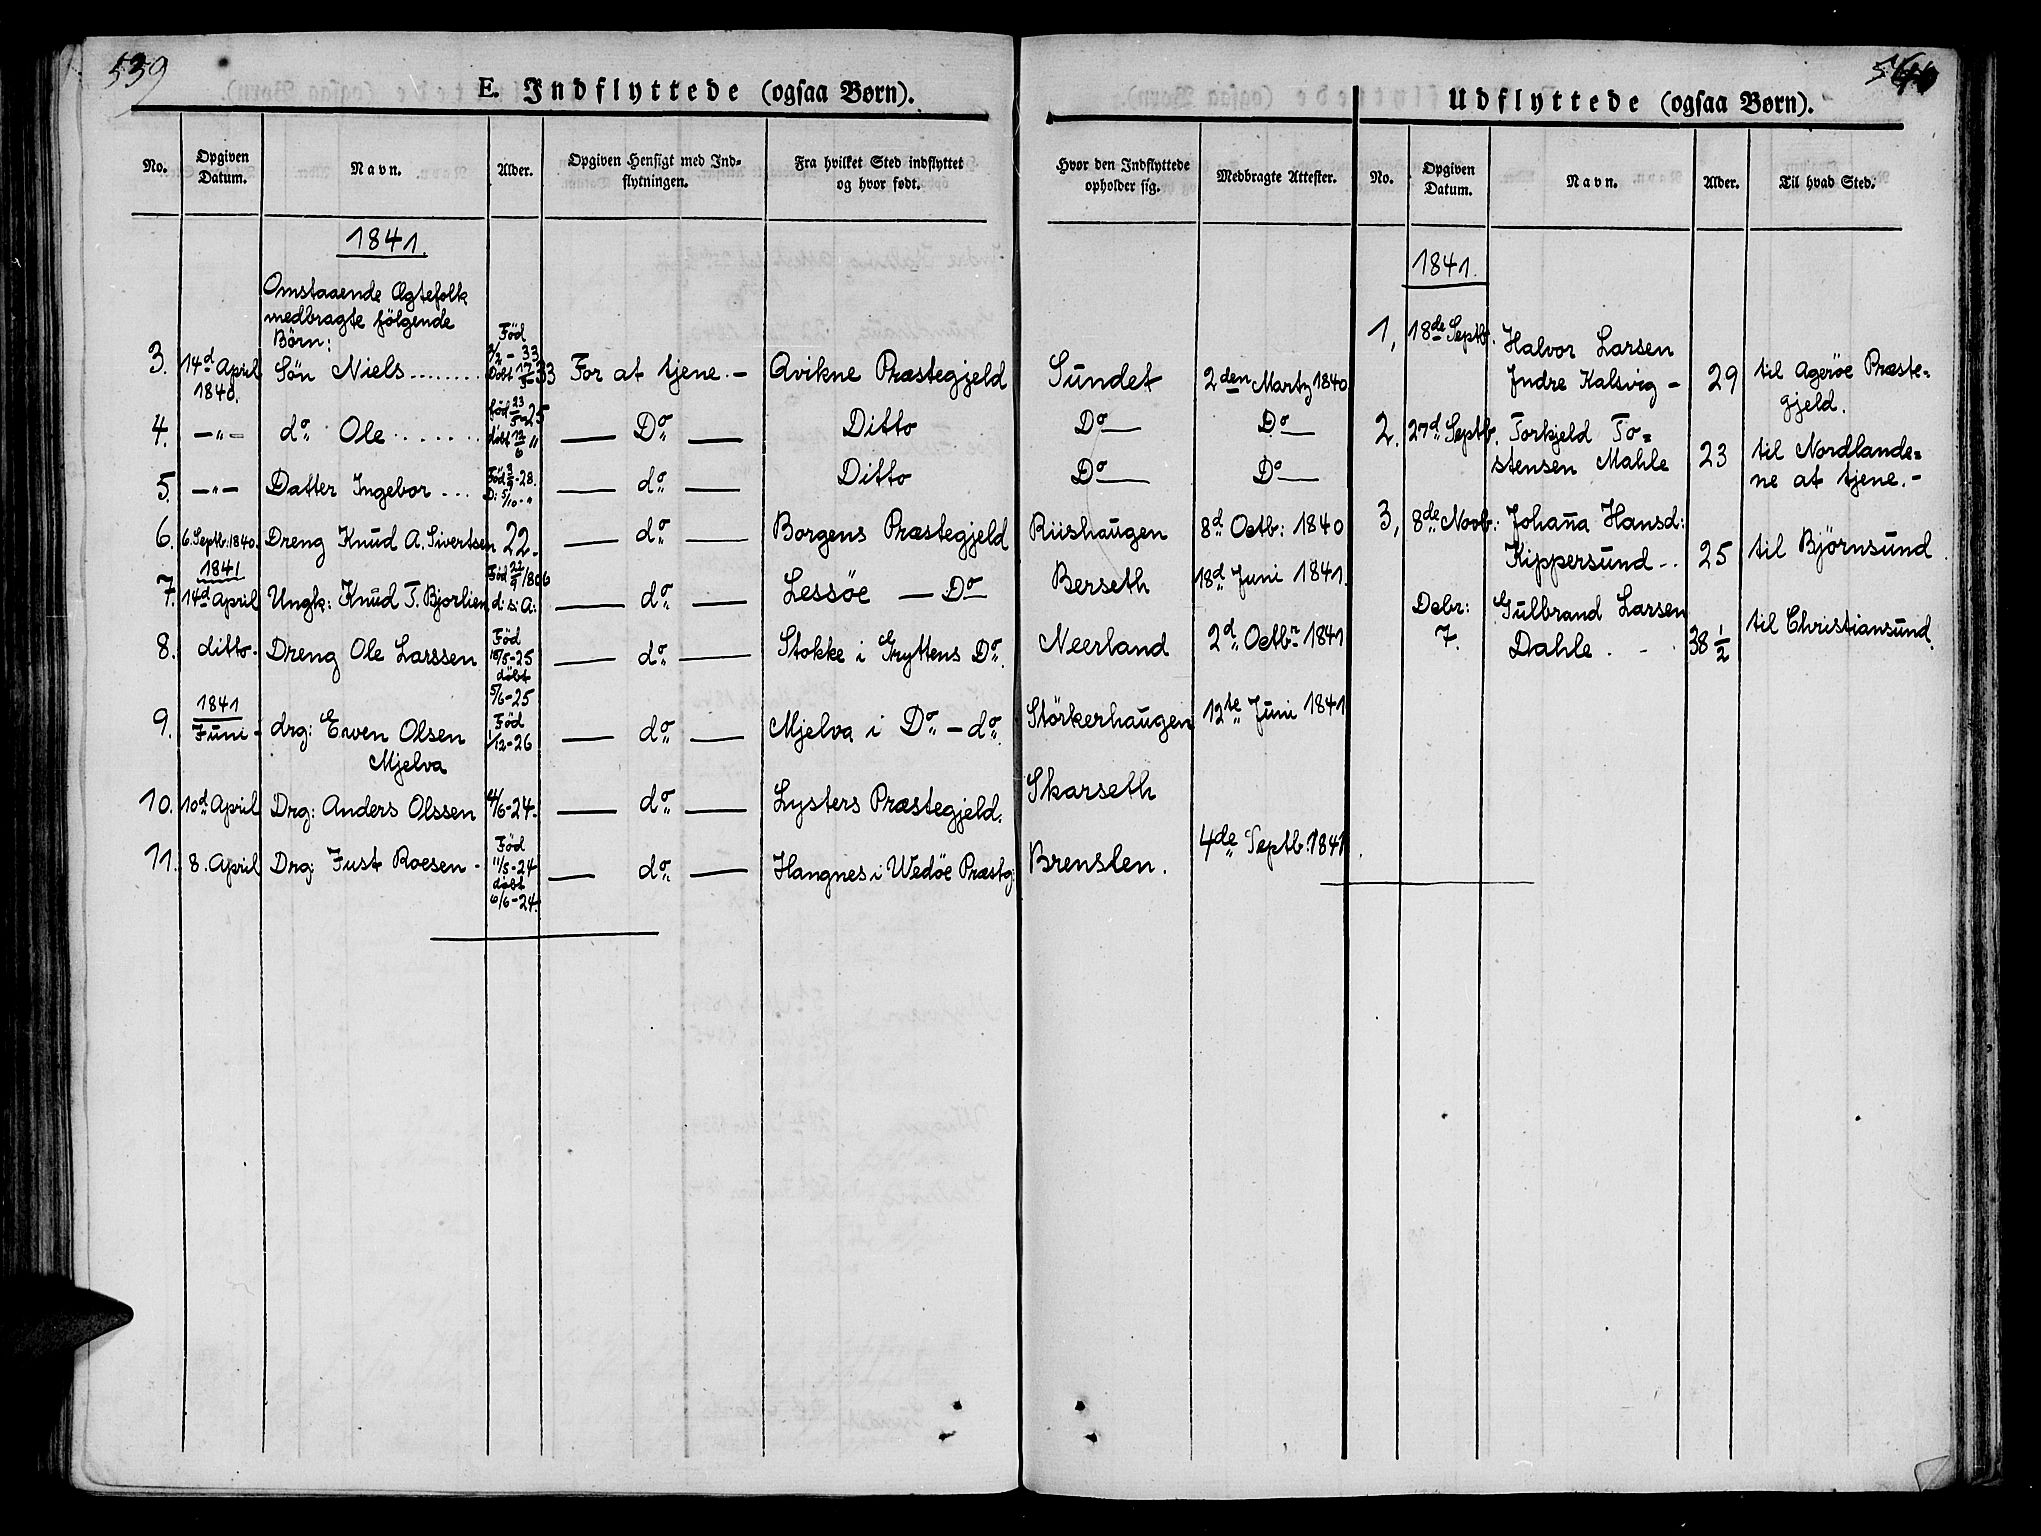 539
E. Indflyttede (ogsaa Børn).
No.
Opgiven Datum.
Navn.
Alder.
Opgiven Hensigt med Ind-
flytningen.
Fra hvilket Sted indflyttet
og hvor født.
1841.
Omstaaende Ægtefolk
medbragte følgende
Börn:
3. 14d April 1840. Sön Niels........ Föd 3/2 - 33 Döbt 17/5-33 For at tjene. - Qvikne Præstegjeld
4. -"- do Ole........ föd 23/5-25 döbt 12/6 " Do Ditto
5. -"- Datter Ingebor... Föd 3/9-28. D: 5/10-" do Ditto
6. 6. Septb: 1840. Dreng Knud A. Sivertsen 22- do Borgens Præstegjeld
1841
7. 14d April Ungk: Knud T. Bjorlien Föd 22/9 1806 d: s: A: do Lessöe - Do
8. ditto- Dreng Ole Larssen Föd 15/5-25 döbt 5/6-25 do Stokke i Gryttens Do.
1841
9. Juni- drg: Ewen Olsen Föd 1/12-26 do Mjelva i Do - do
Mjelva
10. 10d April Drg: Anders Olssen 14/6-24. do Lysters Præstegjeld.
11. 8. April Drg: Just Roesen - Föd 11/5-24 döbt 6/6-24. do Hangnes i Wedöe Præstg:
Hvor den Indflyttede
opholder sig.
Medbragte Attester.
Sundet 2den Martz 1840
Do Do
Do Do
Riishaugen 8d Octb: 1840
Berseth 18d Juni 1841.
Neerland 2d Octbr 1841
Störkerhaugen 12te Juni 1841
Skarseth
Brensten. 4de Septb: 1841.
Udflyttede (ogsaa Børn).
No.
Opgiven Datum.
Navn.
Alder.
Til hvad Sted.
1841.
1, 18de Septb. Halvor Larsen
Indre Kalsvig - 29 til Ageröe Præste=
gjeld.
2. 27d Septb. Torkjeld To=
stensen Mahle 23 til Nordlande=
ne at tjene. -
3, 8de Novb: Johaña Hansd:
Kippersund.. 25 til Björnsund.
Decbr: 7. Gulbrand Larsen
Dahle. - . 38 1/2 til Christiansund.